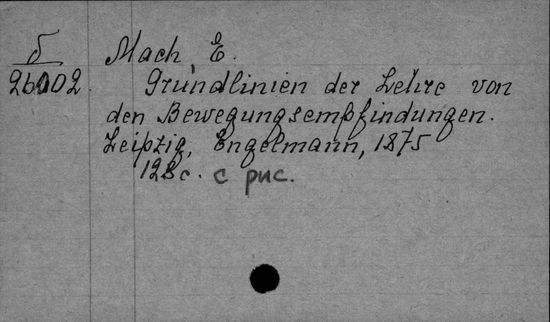 Б
26002.
Mach, E.
Grundlinien der Lehre von
den Bewegungsempfindungen.
Leipzig, Engelmann, 1875
128 с. с рис.